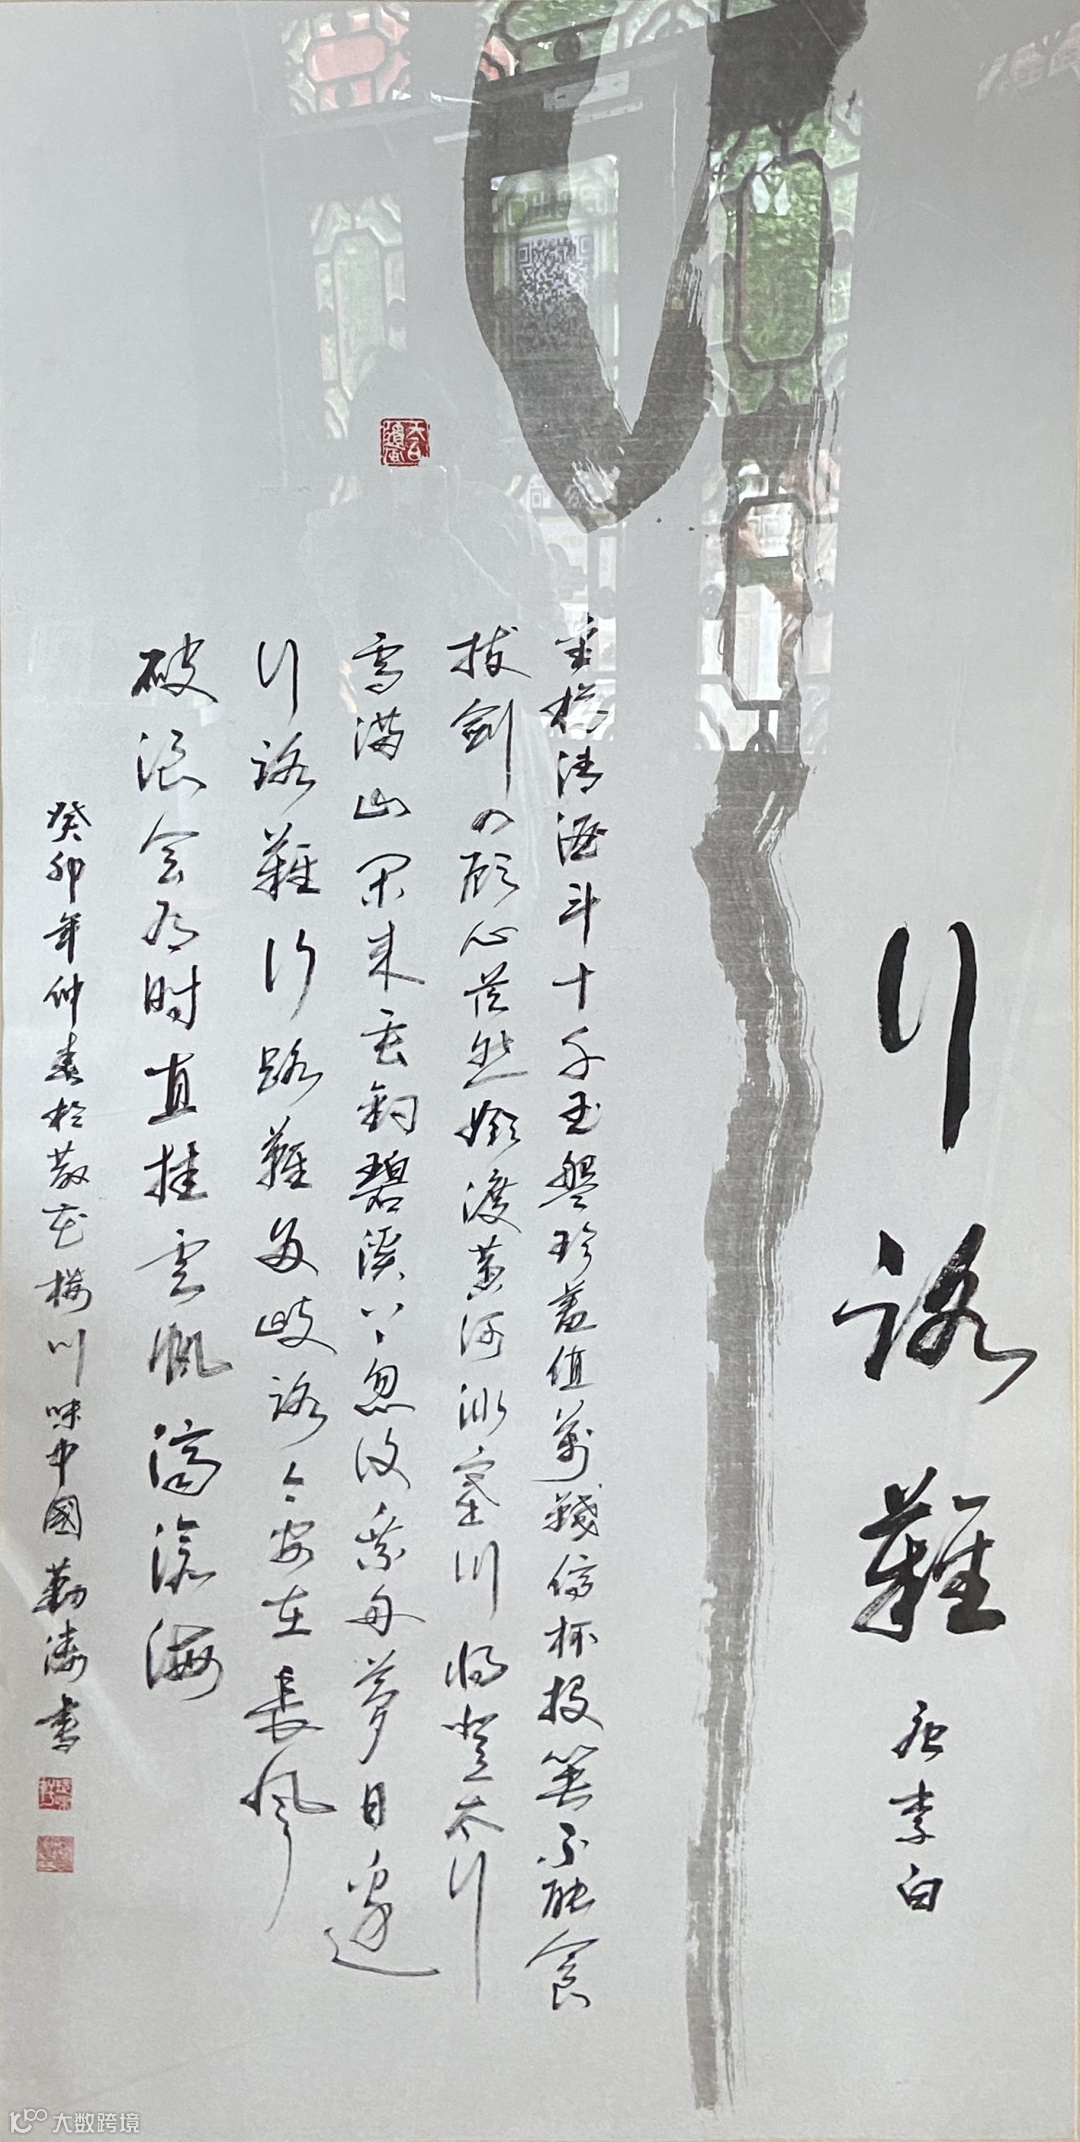 行路難 唐李白
金樽清酒斗十千玉盤珍羞值萬錢停杯投箸不能食
拔劍四顧心茫然欲渡黃河冰塞川將登太行
雪滿山閑來垂釣碧溪上忽復乘舟夢日邊
行路難行路難多岐路今安在長風
破浪会有時直挂雲帆濟滄海
癸卯年仲春於散花樓川味中國勤濤書
大数跨境